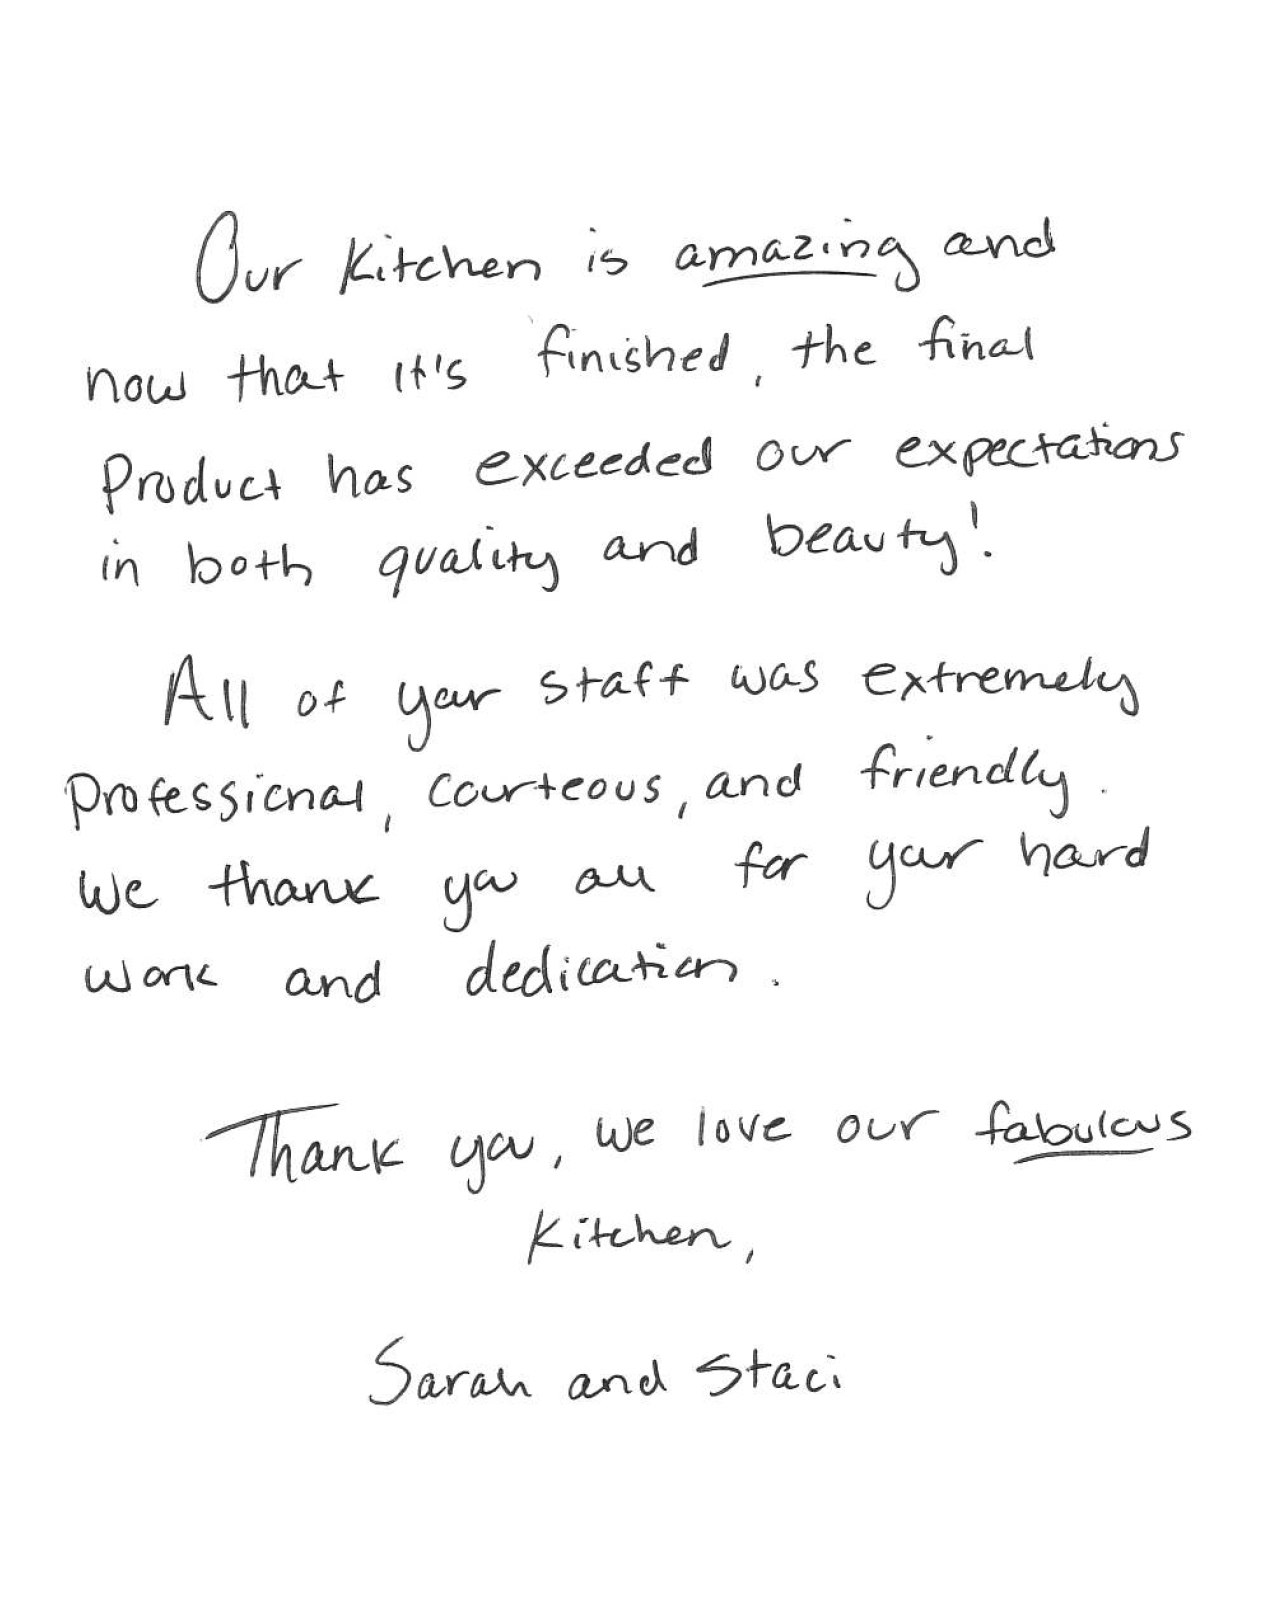 Our Kitchen is amazing and
now that it's finished, the final
Product has exceeded our expectations
in both quality and beauty!
All of your staff was extremely
professional, courteous, and friendly.
We thank you all for your hard
work and dedication.
Thank you, we love our fabulous
Kitchen,
Sarah and Staci